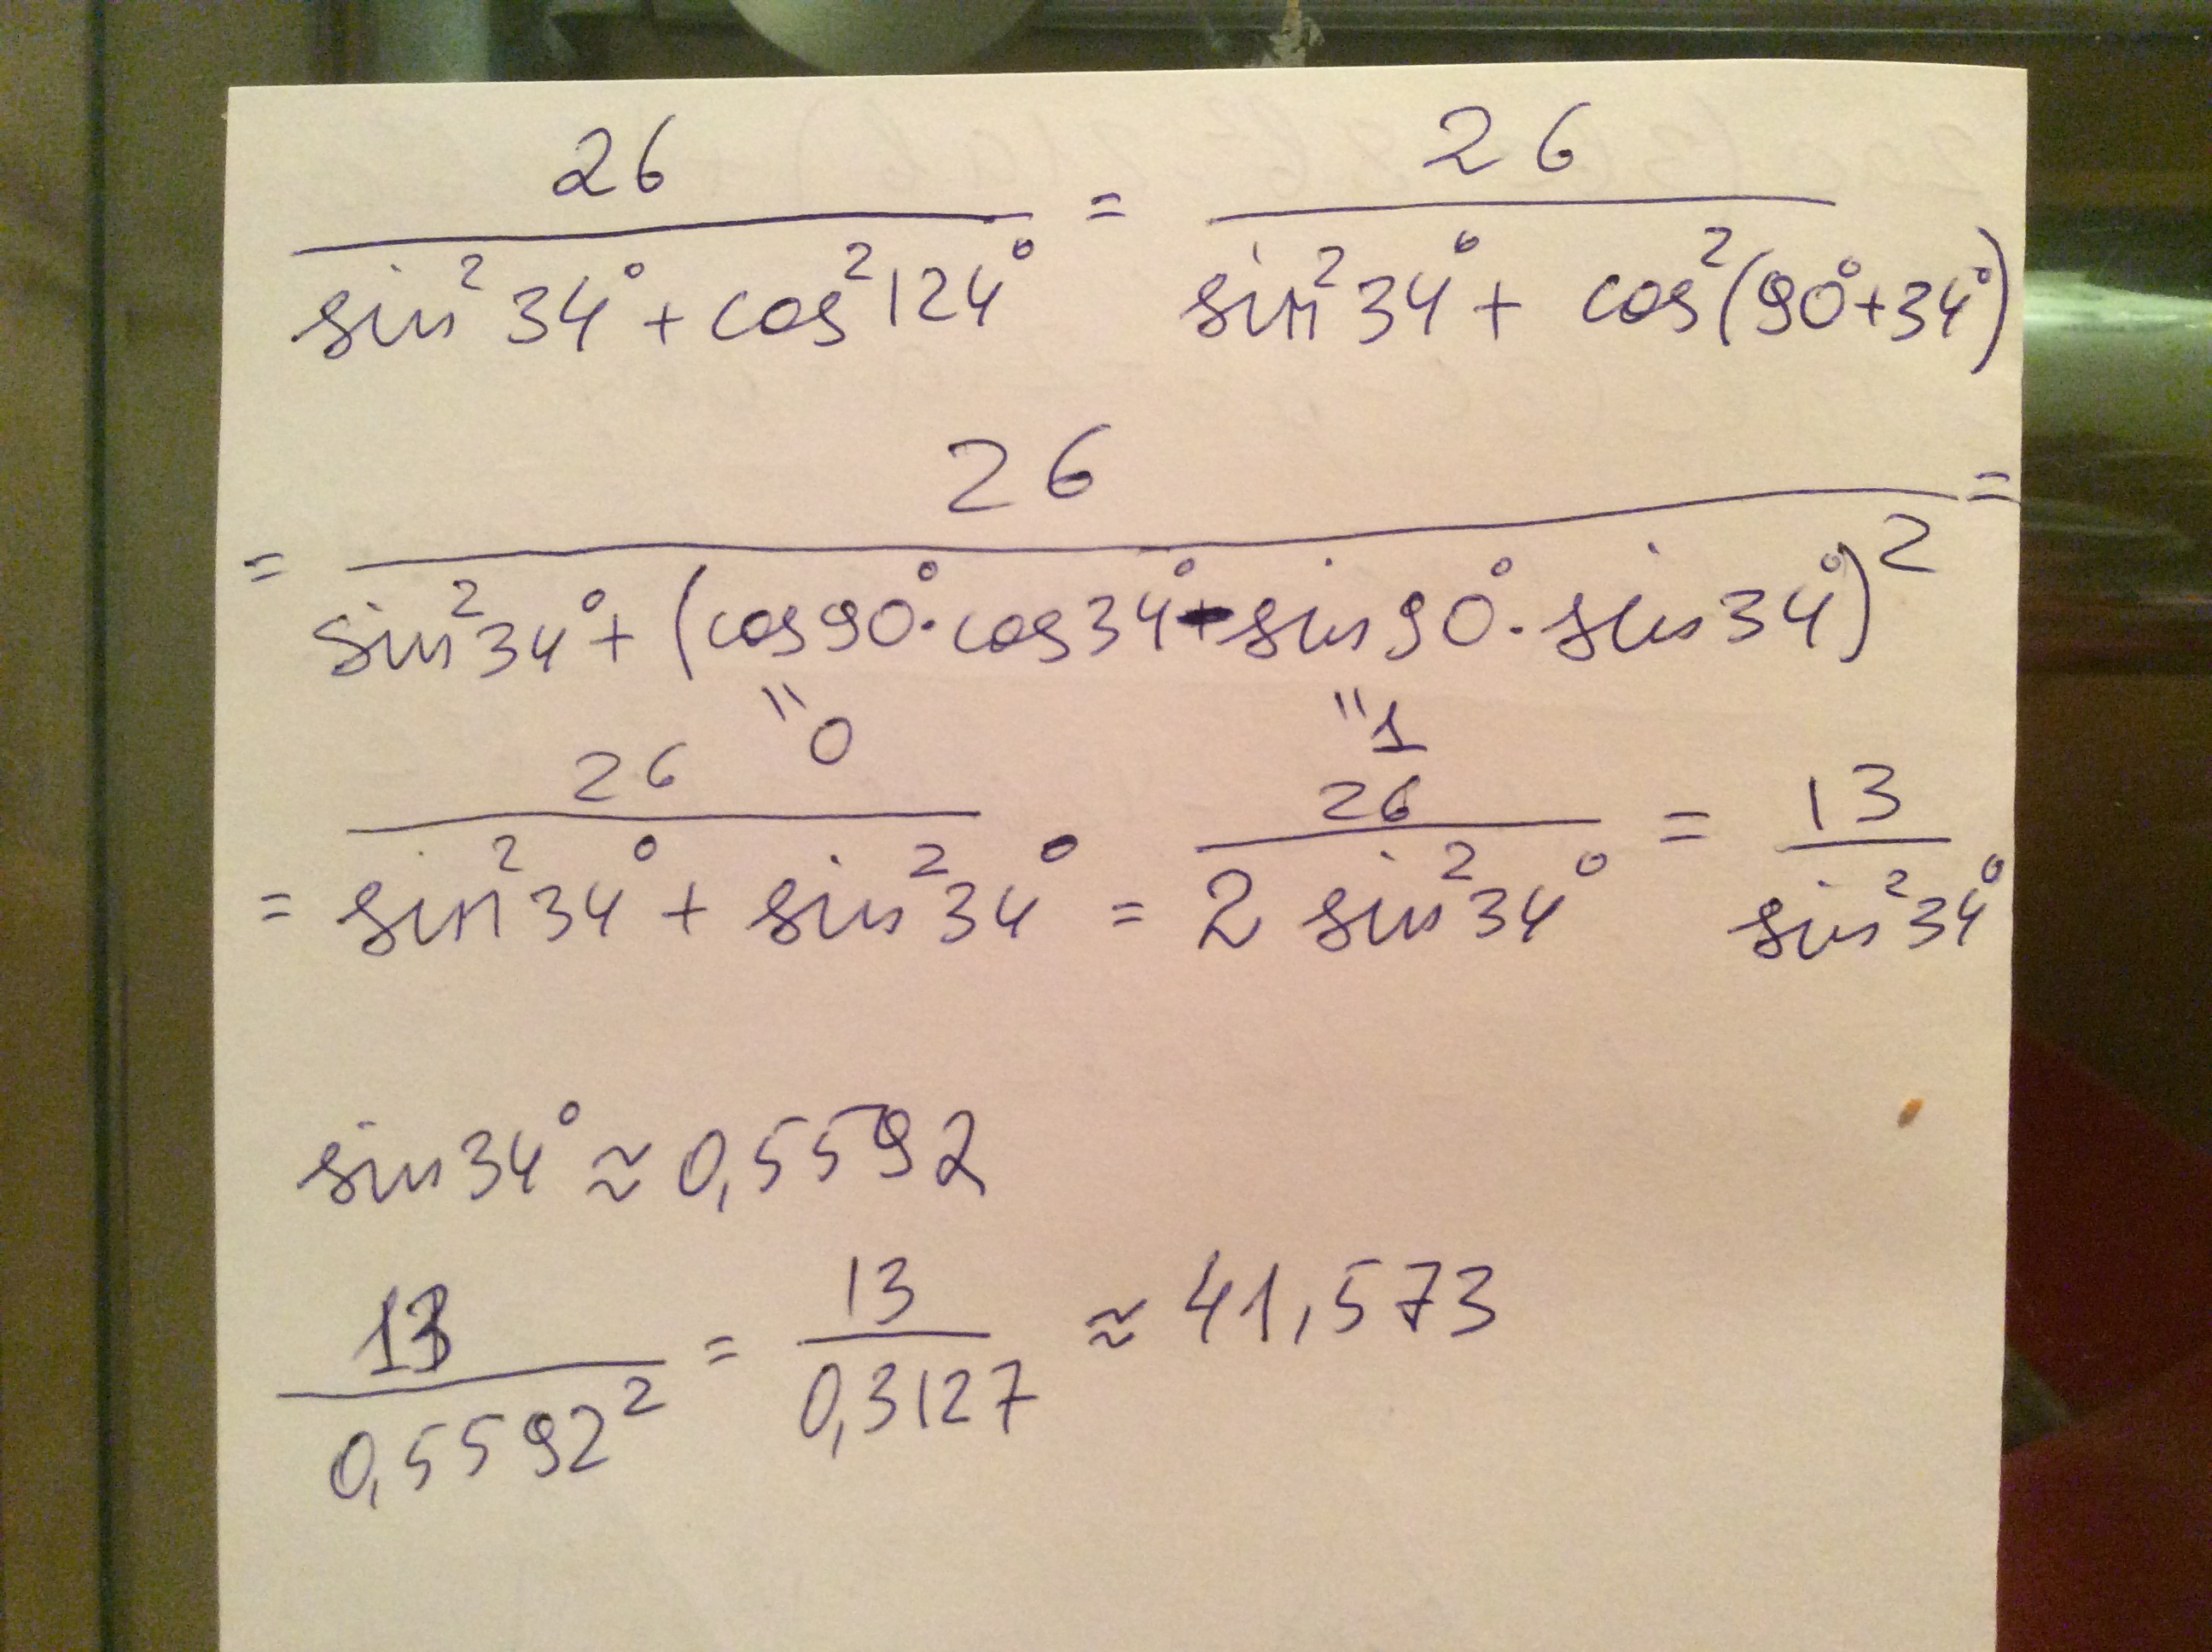 26/(sin²34° + cos²124°) = 26/(sin²34° + cos²(90°+34°))
= 26/(sin²34° + (cos90°·cos34° - sin90°·sin34°)²) =
"0 "1
= 26/(sin²34° + sin²34°) = 26/(2 sin²34°) = 13/(sin²34°)
sin34° ≈ 0,5592
13/(0,5592²) = 13/(0,3127) ≈ 41,573